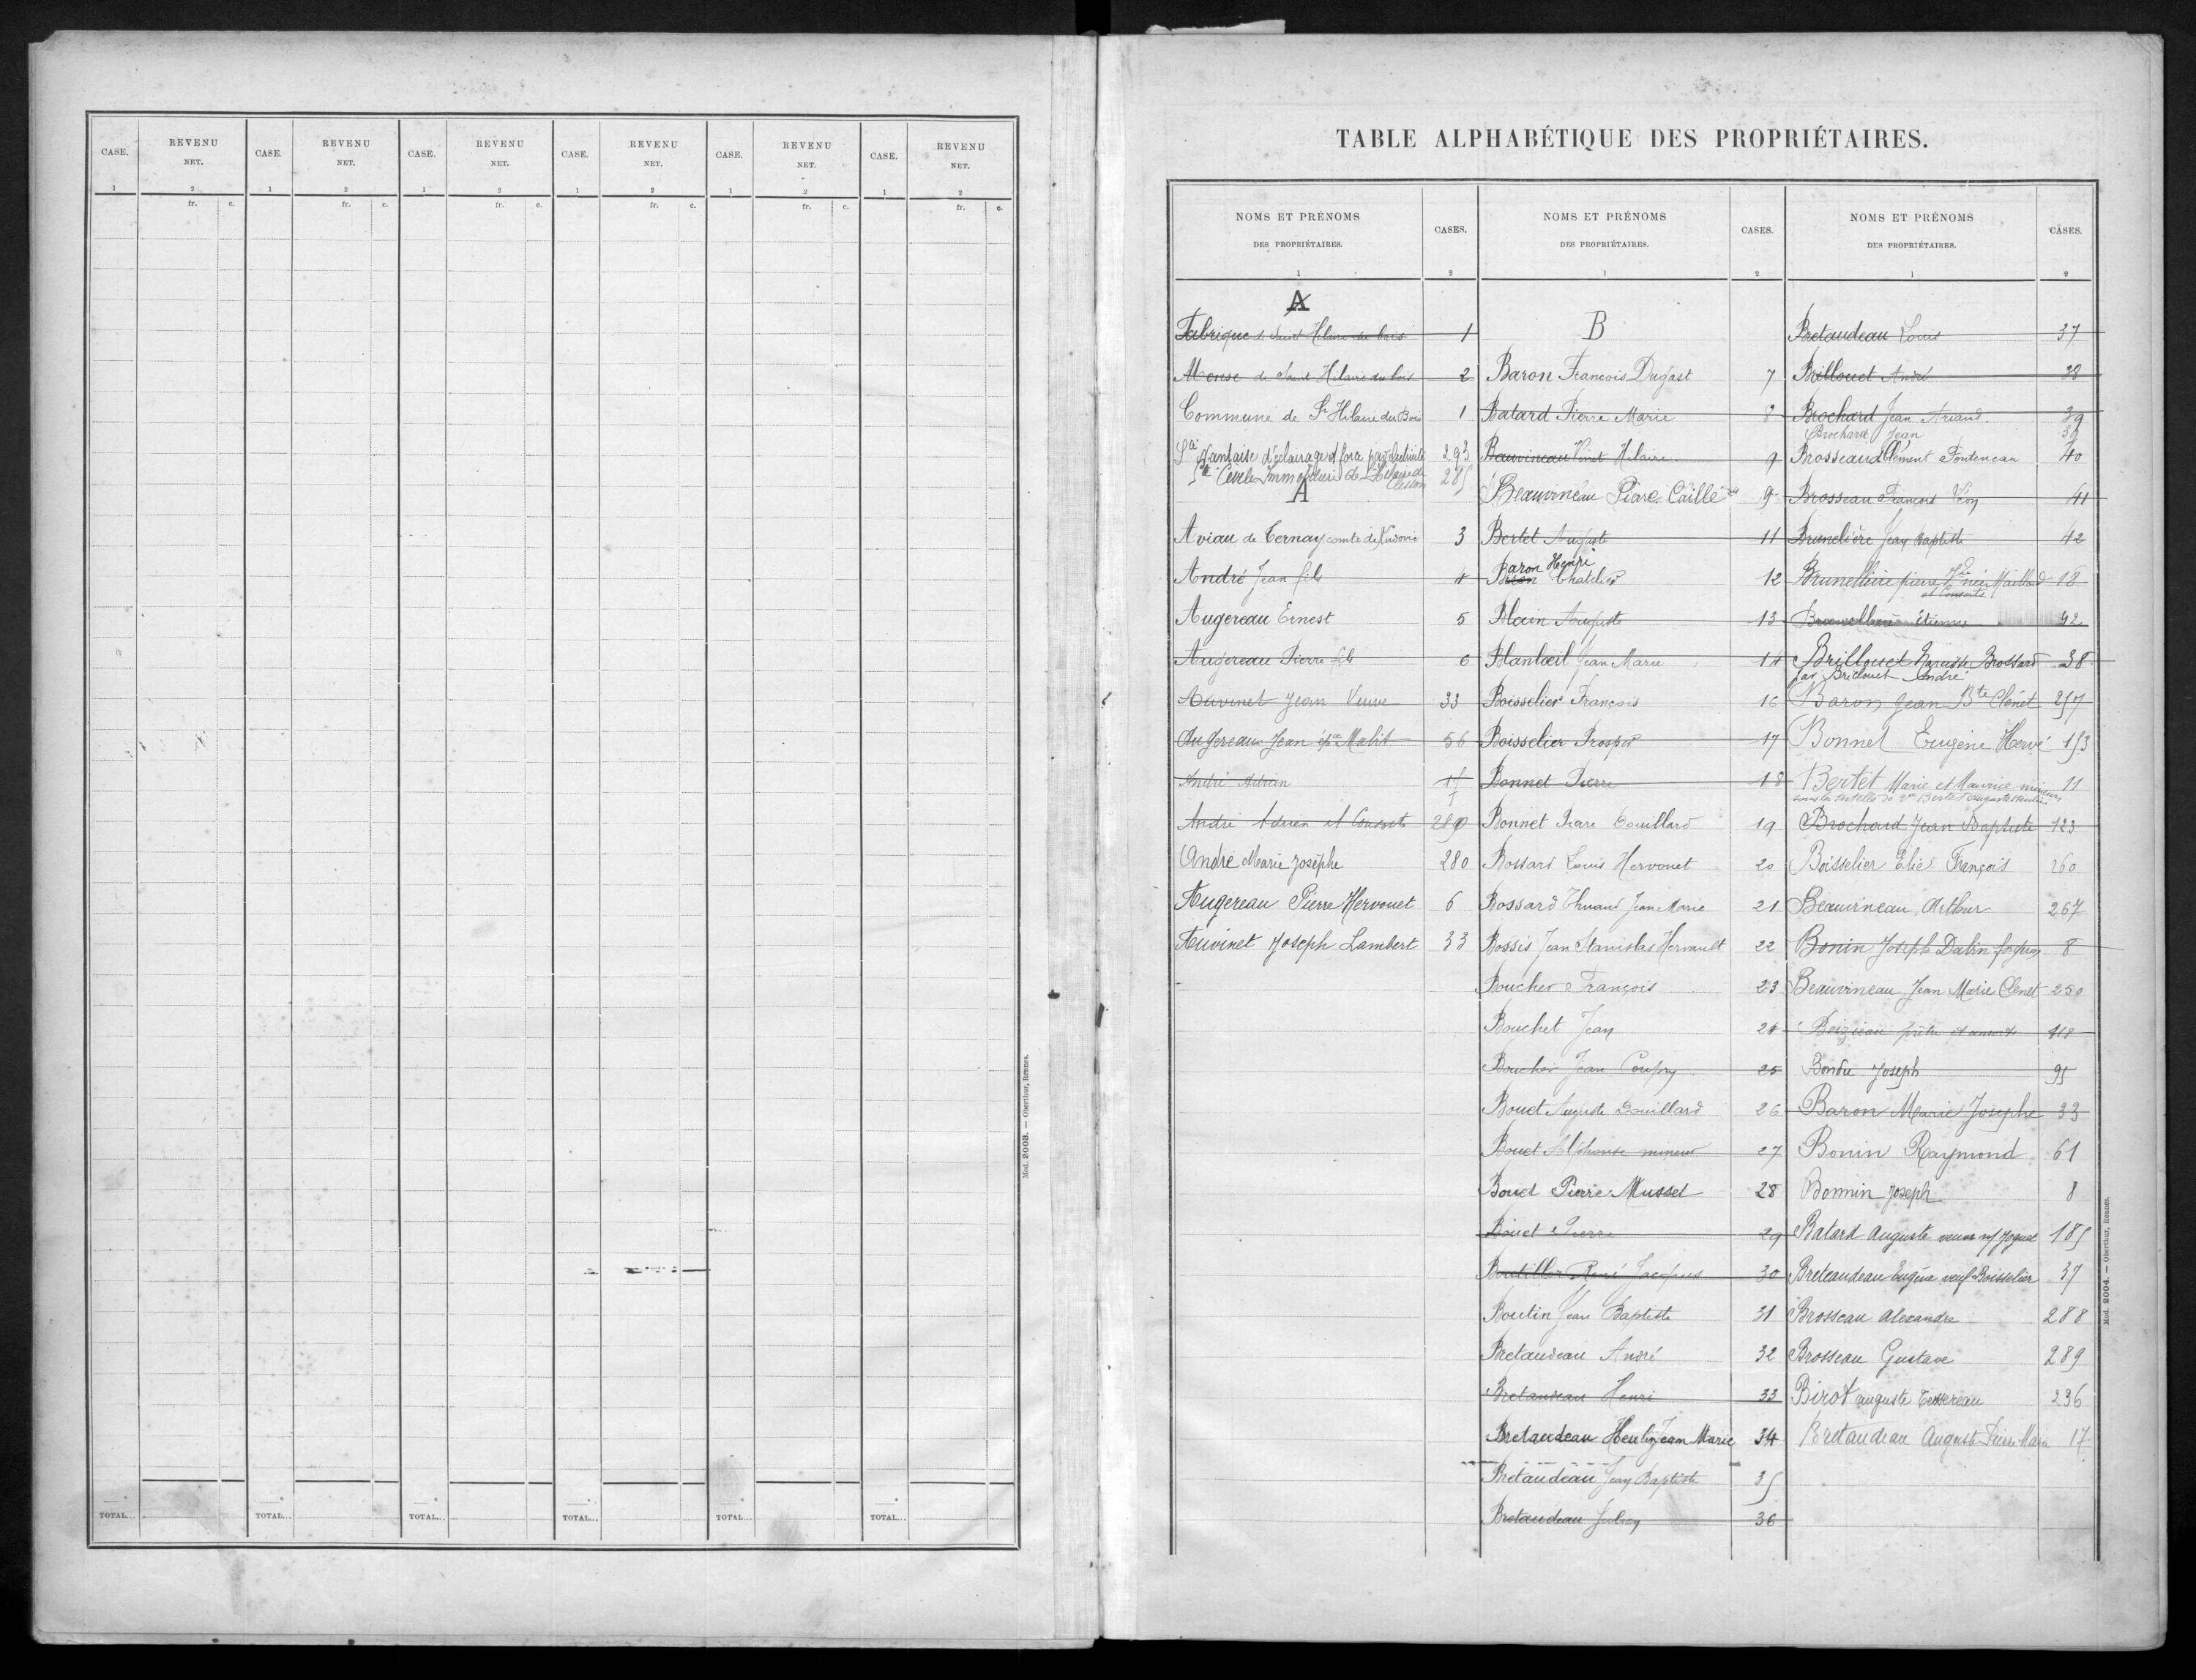 CASE. REVENU NET. CASE. REVENU NET. CASE. REVENU NET. CASE. REVENU NET. CASE. REVENU NET. CASE. REVENU NET.
1 2 1 2 1 2 1 2 1 2 1 2
fr. c. fr. c. fr. c. fr. c. fr. c. fr. c.
TOTAL... TOTAL... TOTAL... TOTAL... TOTAL... TOTAL...
Mod. 2003. — Oberthur, Rennes.
TABLE ALPHABÉTIQUE DES PROPRIÉTAIRES.
NOMS ET PRÉNOMS DES PROPRIÉTAIRES. CASES.
1 2
A
Fabrique de Saint Hilaire du bois 1
Mense de Saint Hilaire du bois 2
Commune de St Hilaire du Bois 1
Sté Nantaise d'éclairage et force par 293
Sté Civile Immobilière de St Hilaire de Clisson 285
A
Aviau de Ternay comte de Ludovic 3
André Jean fils 4
Augereau Ernest 5
Augereau Pierre fils 6
Auvinet Jean Veuve 33
Augereau Jean Malit 56
André Adrien
André Adrien et Consorts 280
André Marie Josèphe 280
Augereau Pierre Hervouet 6
Auvinet Joseph Lambert 33
NOMS ET PRÉNOMS DES PROPRIÉTAIRES. CASES.
1 2
B
Baron François Dugast 7
Batard Pierre Marie 8
Beauvineau Venet Hilaire 9
Beauvineau Pierre Caillé 9
Bertet Auguste 11
Baron Henri
Chatelier 12
Blain Auguste 13
Blanloeil Jean Marie 14
Boisselier François 16
Boisselier Prosper 17
Bonnet Pierre 18
Bonnet Pierre Douillard 19
Bossard Louis Hervouet 20
Bossard Jean Marie 21
Bossis Jean Stanislas Hervault 22
Boucher François 23
Bouchet Jean 24
Boucher Jean Coupry 25
Bouet Auguste Douillard 26
Bouet Alphonse mineur 27
Bouet Pierre Musset 28
Bouet Pierre 29
Boutiller René Jacques 30
Boutin Jean Baptiste 31
Bretaudeau André 32
Bretaudeau Henri 33
Bretaudeau Heulin Jean Marie 34
Bretaudeau Jean Baptiste 35
Bretaudeau Julien 36
NOMS ET PRÉNOMS DES PROPRIÉTAIRES. CASES.
1 2
Bretaudeau Louis 37
Brillouet André 38
Brochard Jean Ariand 39
Brochard Jean 39
Brosseaud Clément Fonteneau 40
Brosseau François 41
Brunelière Jean Baptiste 42
Brunellière pierre Vve née Maillard 18
et Consorts
Brunellière Etienne 92
Brillouet Narcisse Brossard 38
par Brillouet André
Baron Jean Bte Clénet 257
Bonnet Eugène Hervé 153
Bertet Marie et Maurice mineurs 11
sous la tutelle de Vve Bertet Auguste
Brochard Jean Baptiste 123
Boisselier Elie François 260
Beauvineau Arthur 267
Bonin Joseph Dalin forgeron 8
Beauvineau Jean Marie Clenet 250
Boizieau et consorts 118
Bondu Joseph 95
Baron Marie Josèphe 33
Bonin Raymond 61
Bonnin Joseph 8
Batard Auguste veuve 185
Breteaudeau Eugène veuf Boisselier 37
Brosseau Alexandre 288
Brosseau Gustave 289
Birot auguste Tessereau 236
Bretaudeau August Pierre Marie 17
Mod. 2004. — Oberthur, Rennes.